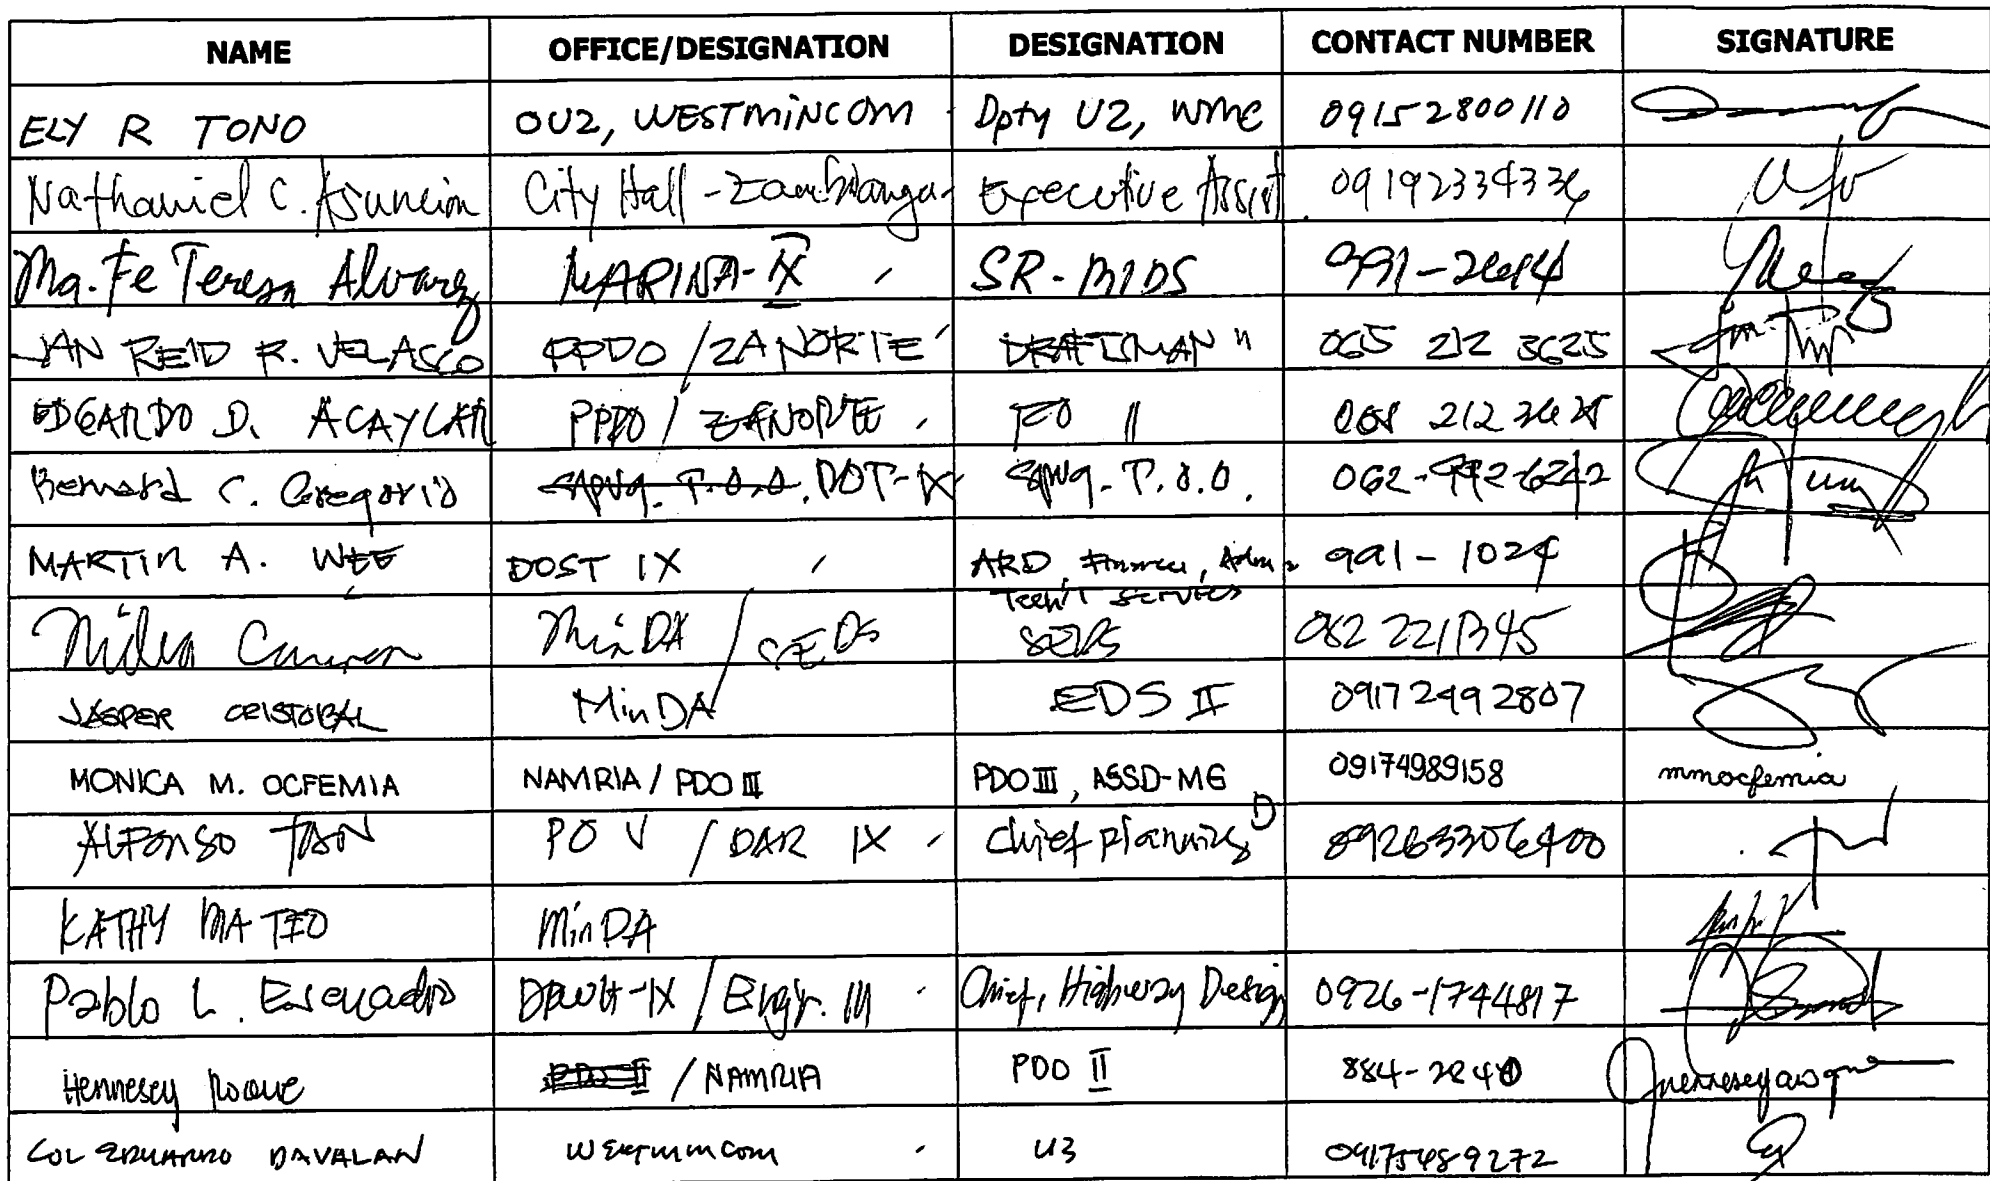 NAME OFFICE/DESIGNATION DESIGNATION CONTACT NUMBER SIGNATURE
ELY R TONO OU2, WESTMINCOM Dpty U2, WMC 09152800110
Nathaniel C. Asuncion City Hall - Zamboanga Executive Assist. 09192334336
Ma. Fe Teresa Alvarez MARINA-IX SR-MIDS 991-2614
JAN REID R. VELASCO PPDO / ZANORTE DRAFTSMAN II 065 212 3625
EDGARDO D. ACAYLAR PPDO / ZANORTE II
Bernard C. Gregorio DOT-IX T.O.O. 062-992-6242
MARTIN A. WEE DOST IX ARD, Finance, Admin 991-1024
Tech'l Services
MinDA 082 2211345
JASPER CRISTOBAL MinDA EDS II 09172492807
MONICA M. OCFEMIA NAMRIA / PDO III PDO III, ASSD-MGD 09174989158 mmocfemia
ALFONSO TAN PO V / DAR IX Chief Planning 
KATHY MATEO MinDA
Pablo L. DPWH-IX / Engr. III Chief, Highway Design 0926-1744817
Hennesey Roque PDO II / NAMRIA PDO II
COL EDUARDO DAVALAN WESTMINCOM U3 09175489272